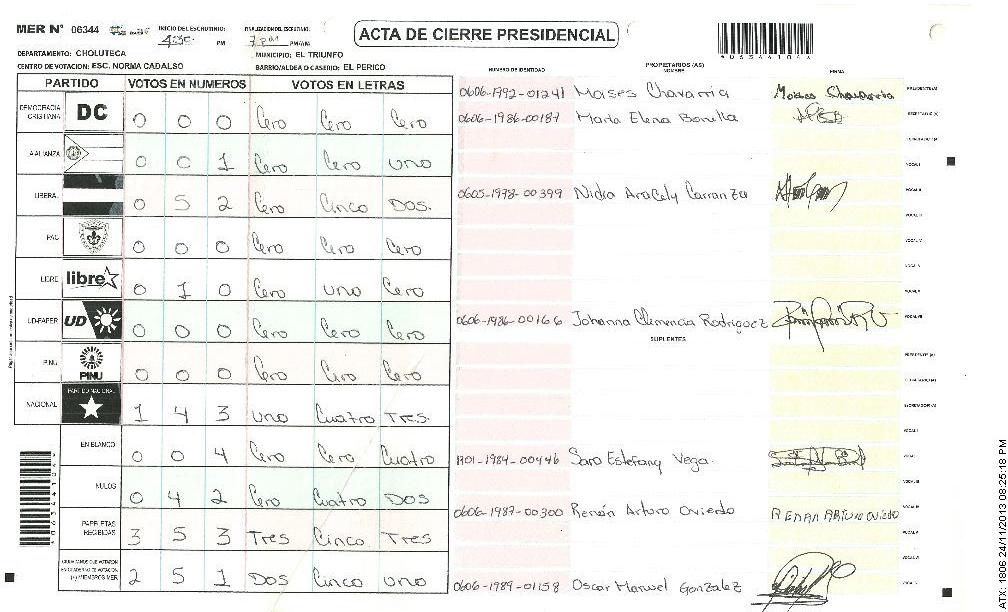 MER N° 06344 INICIO DEL ESCRUTINIO: 4:35 PM FINALIZACION DEL ESCRUTINIO: 7 PM PM/AM
ACTA DE CIERRE PRESIDENCIAL
DEPARTAMENTO: CHOLUTECA MUNICIPIO: EL TRIUNFO
CENTRO DE VOTACION: ESC. NORMA CADALSO BARRIO/ALDEA O CASERIO: EL PERICO
PARTIDO VOTOS EN NUMEROS VOTOS EN LETRAS
DEMOCRACIA CRISTIANA DC 0 0 0 Cero Cero Cero
ALIANZA 0 0 1 Cero Cero uno
LIBERAL 0 5 2 Cero Cinco Dos.
PAC 0 0 0 Cero Cero Cero
LIBRE libre 0 1 0 Cero uno Cero
UD-FAPER UD 0 0 0 Cero Cero Cero
PINU PINU 0 0 0 Cero Cero Cero
NACIONAL PARTIDO NACIONAL 1 4 3 uno Cuatro Tres.
EN BLANCO 0 0 4 Cero Cero Cuatro
NULOS 0 4 2 Cero Cuatro Dos
PAPELETAS RECIBIDAS 3 5 3 Tres Cinco Tres
CIUDADANOS QUE VOTARON EN CUADERNO DE VOTACION (+) MIEMBROS MER 2 5 1 Dos Cinco uno
PROPIETARIOS (AS)
NUMERO DE IDENTIDAD NOMBRE FIRMA
0606-1992-01241 Moises Chavarria Moises Chavarria PRESIDENTE (A)
0606-1986-00187 Marta Elena Bonilla SECRETARIO (A)
ESCRUTADOR (A)
VOCAL I
0605-1978-00399 Nidia Aracely Carranza VOCAL II
VOCAL III
VOCAL IV
VOCAL V
VOCAL VI
0606-1986-00166 Johanna Clemencia Rodriguez VOCAL VII
SUPLENTES
PRESIDENTE (A)
SECRETARIO (A)
ESCRUTADOR (A)
VOCAL I
1801-1984-00446 Sara Estefany Vega. VOCAL II
VOCAL III
0606-1987-00300 Renán Arturo Oviedo RENAN ARTURO OVIEDO VOCAL IV
VOCAL V
VOCAL VI
0606-1989-01158 Oscar Manuel Gonzalez
ATX: 1806 24/11/2013 08:25:18 PM